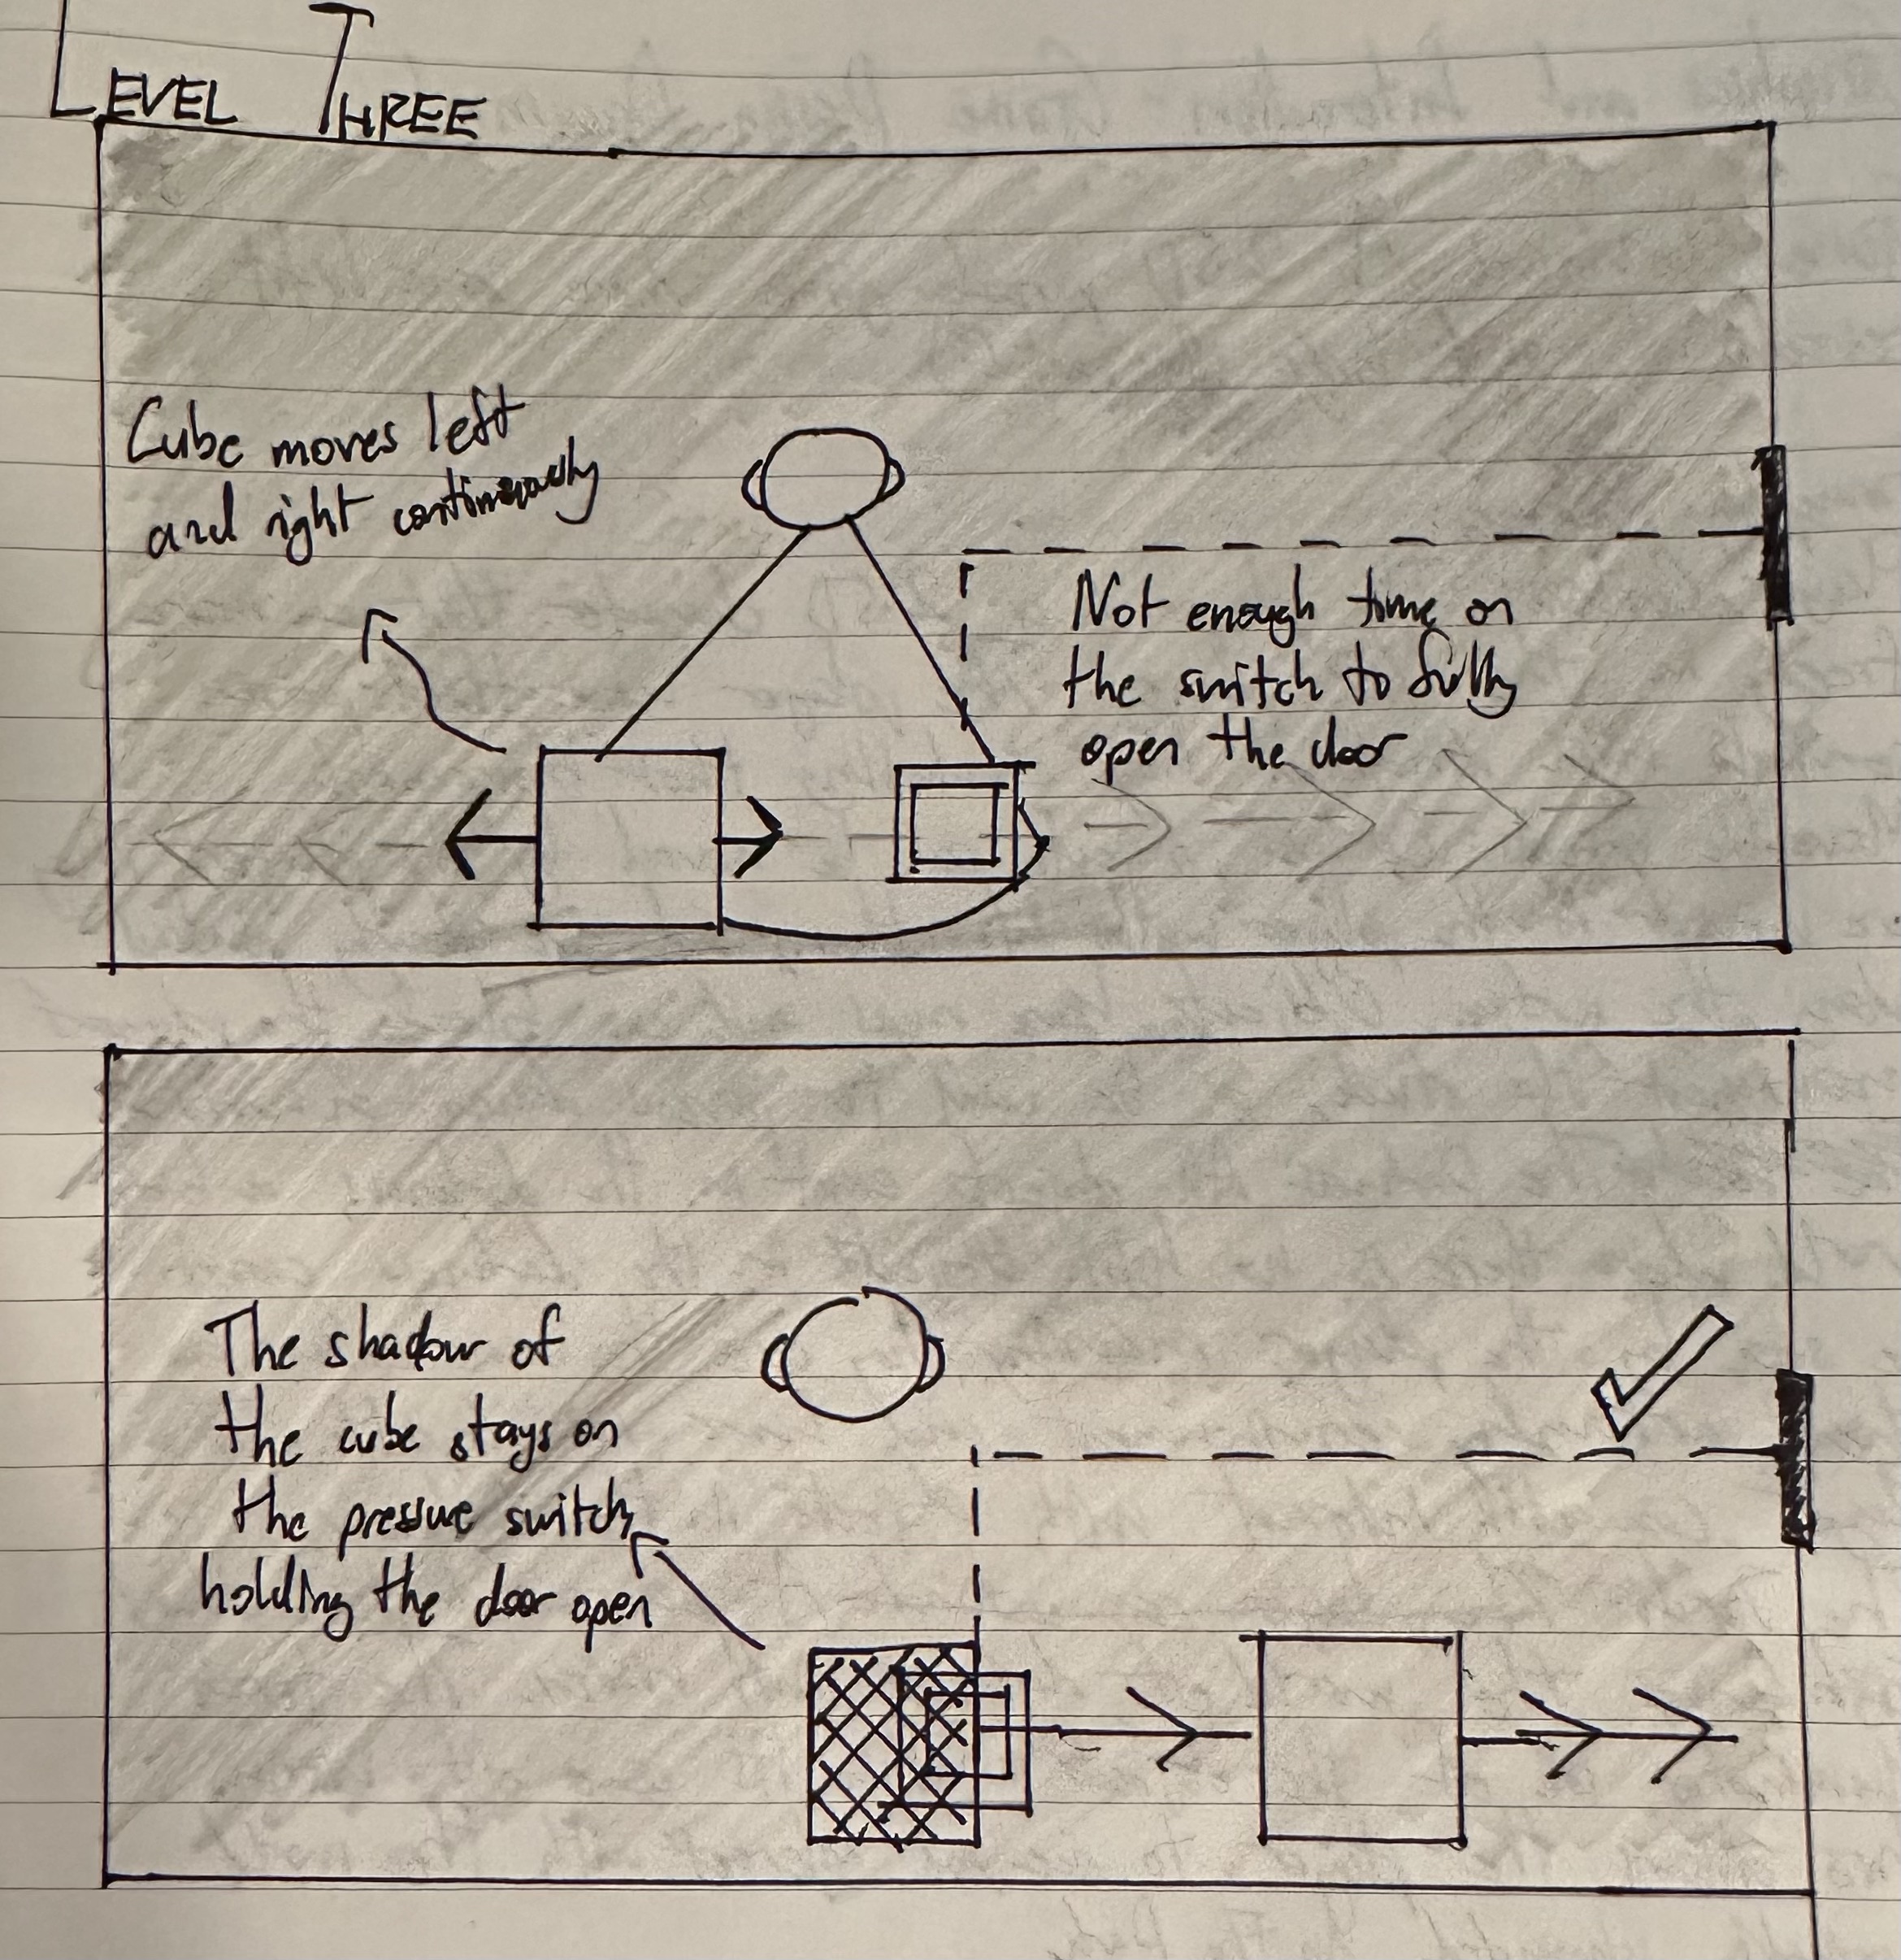 LEVEL THREE
Cube moves left
and right continuously
Not enough time on
the switch to fully
open the door
The shadow of
the cube stays on
the pressure switch
holding the door open